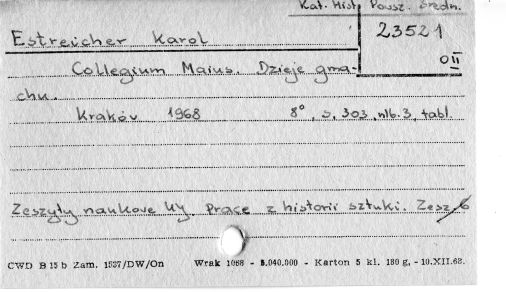 Kat. Hist. Pousz. Średn.
Estreicher Karol
23521
O II
Collegium Maius. Dzieje gma-
chu.
Kraków 1968 8°, s. 303, nlb. 3, tabl.
Zeszyty naukowe UJ. Prace z historii sztuki. Zesz. 6
CWD B 15 b Zam. 1537/DW/On Wrak 1068 - 5.040.000 - Karton 5 kl. 180 g. - 10.XII.62.